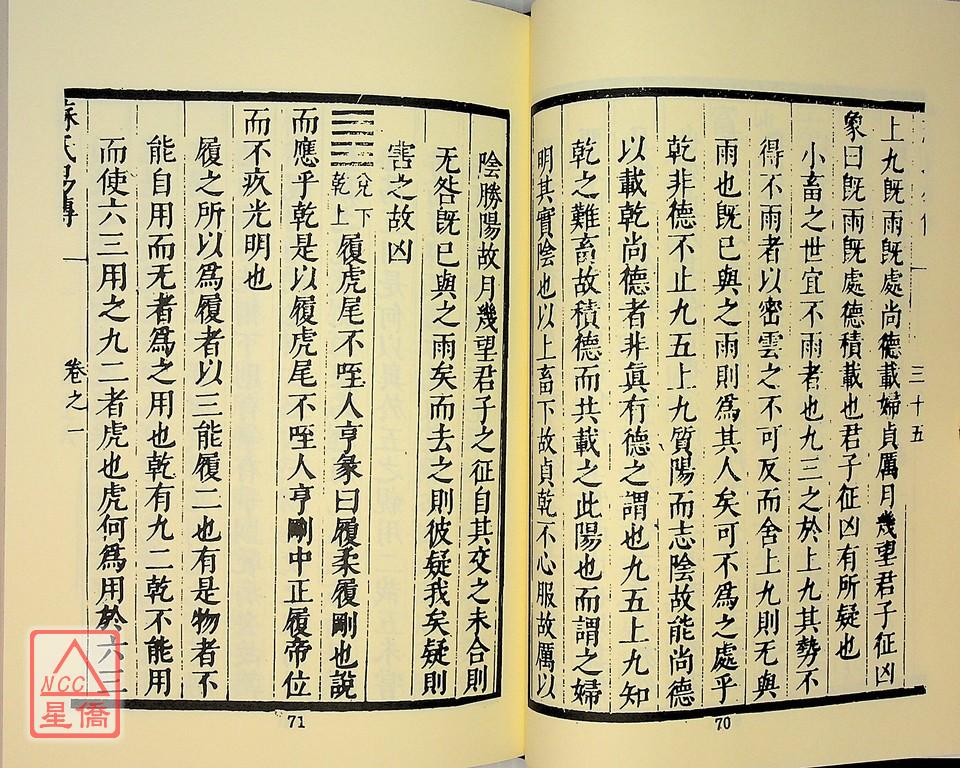 三十五
上九既雨既處尚德載婦貞厲月幾望君子征凶
象曰既雨既處德積載也君子征凶有所疑也
小畜之世宜不雨者也九三之於上九其勢不
得不雨者以密雲之不可反而舍上九則无與
雨也既已與之雨則為其人矣可不為之處乎
乾非德不止九五上九質陽而志陰故能尚德
以載乾尚德者非真有德之謂也九五上九知
乾之難畜故積德而共載之此陽也而謂之婦
明其實陰也以上畜下故貞乾不心服故厲以
70
陰勝陽故月幾望君子之征自其交之未合則
无咎既已與之雨矣而去之則彼疑我矣疑則
害之故凶
兌下
乾上
履虎尾不咥人亨彖曰履柔履剛也說
而應乎乾是以履虎尾不咥人亨剛中正履帝位
而不疚光明也
履之所以為履者以三能履二也有是物者不
能自用而无者為之用也乾有九二乾不能用
而使六三用之九二者虎也虎何為用於六三
蘇氏易傳 卷之一
71
NCC
星僑